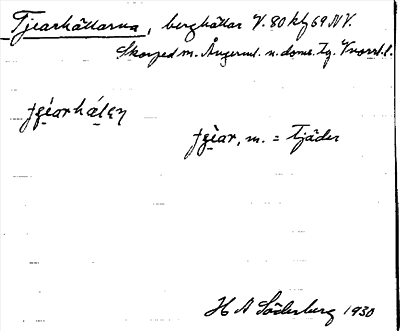 Tjearhättarna, berghättar V. 80 kbf 69 NV.
Skorped m. Ångerml. n. doms. Tg. Vnorrl. l.
tjèar, m. = Tjäder
H A Söderberg 1930